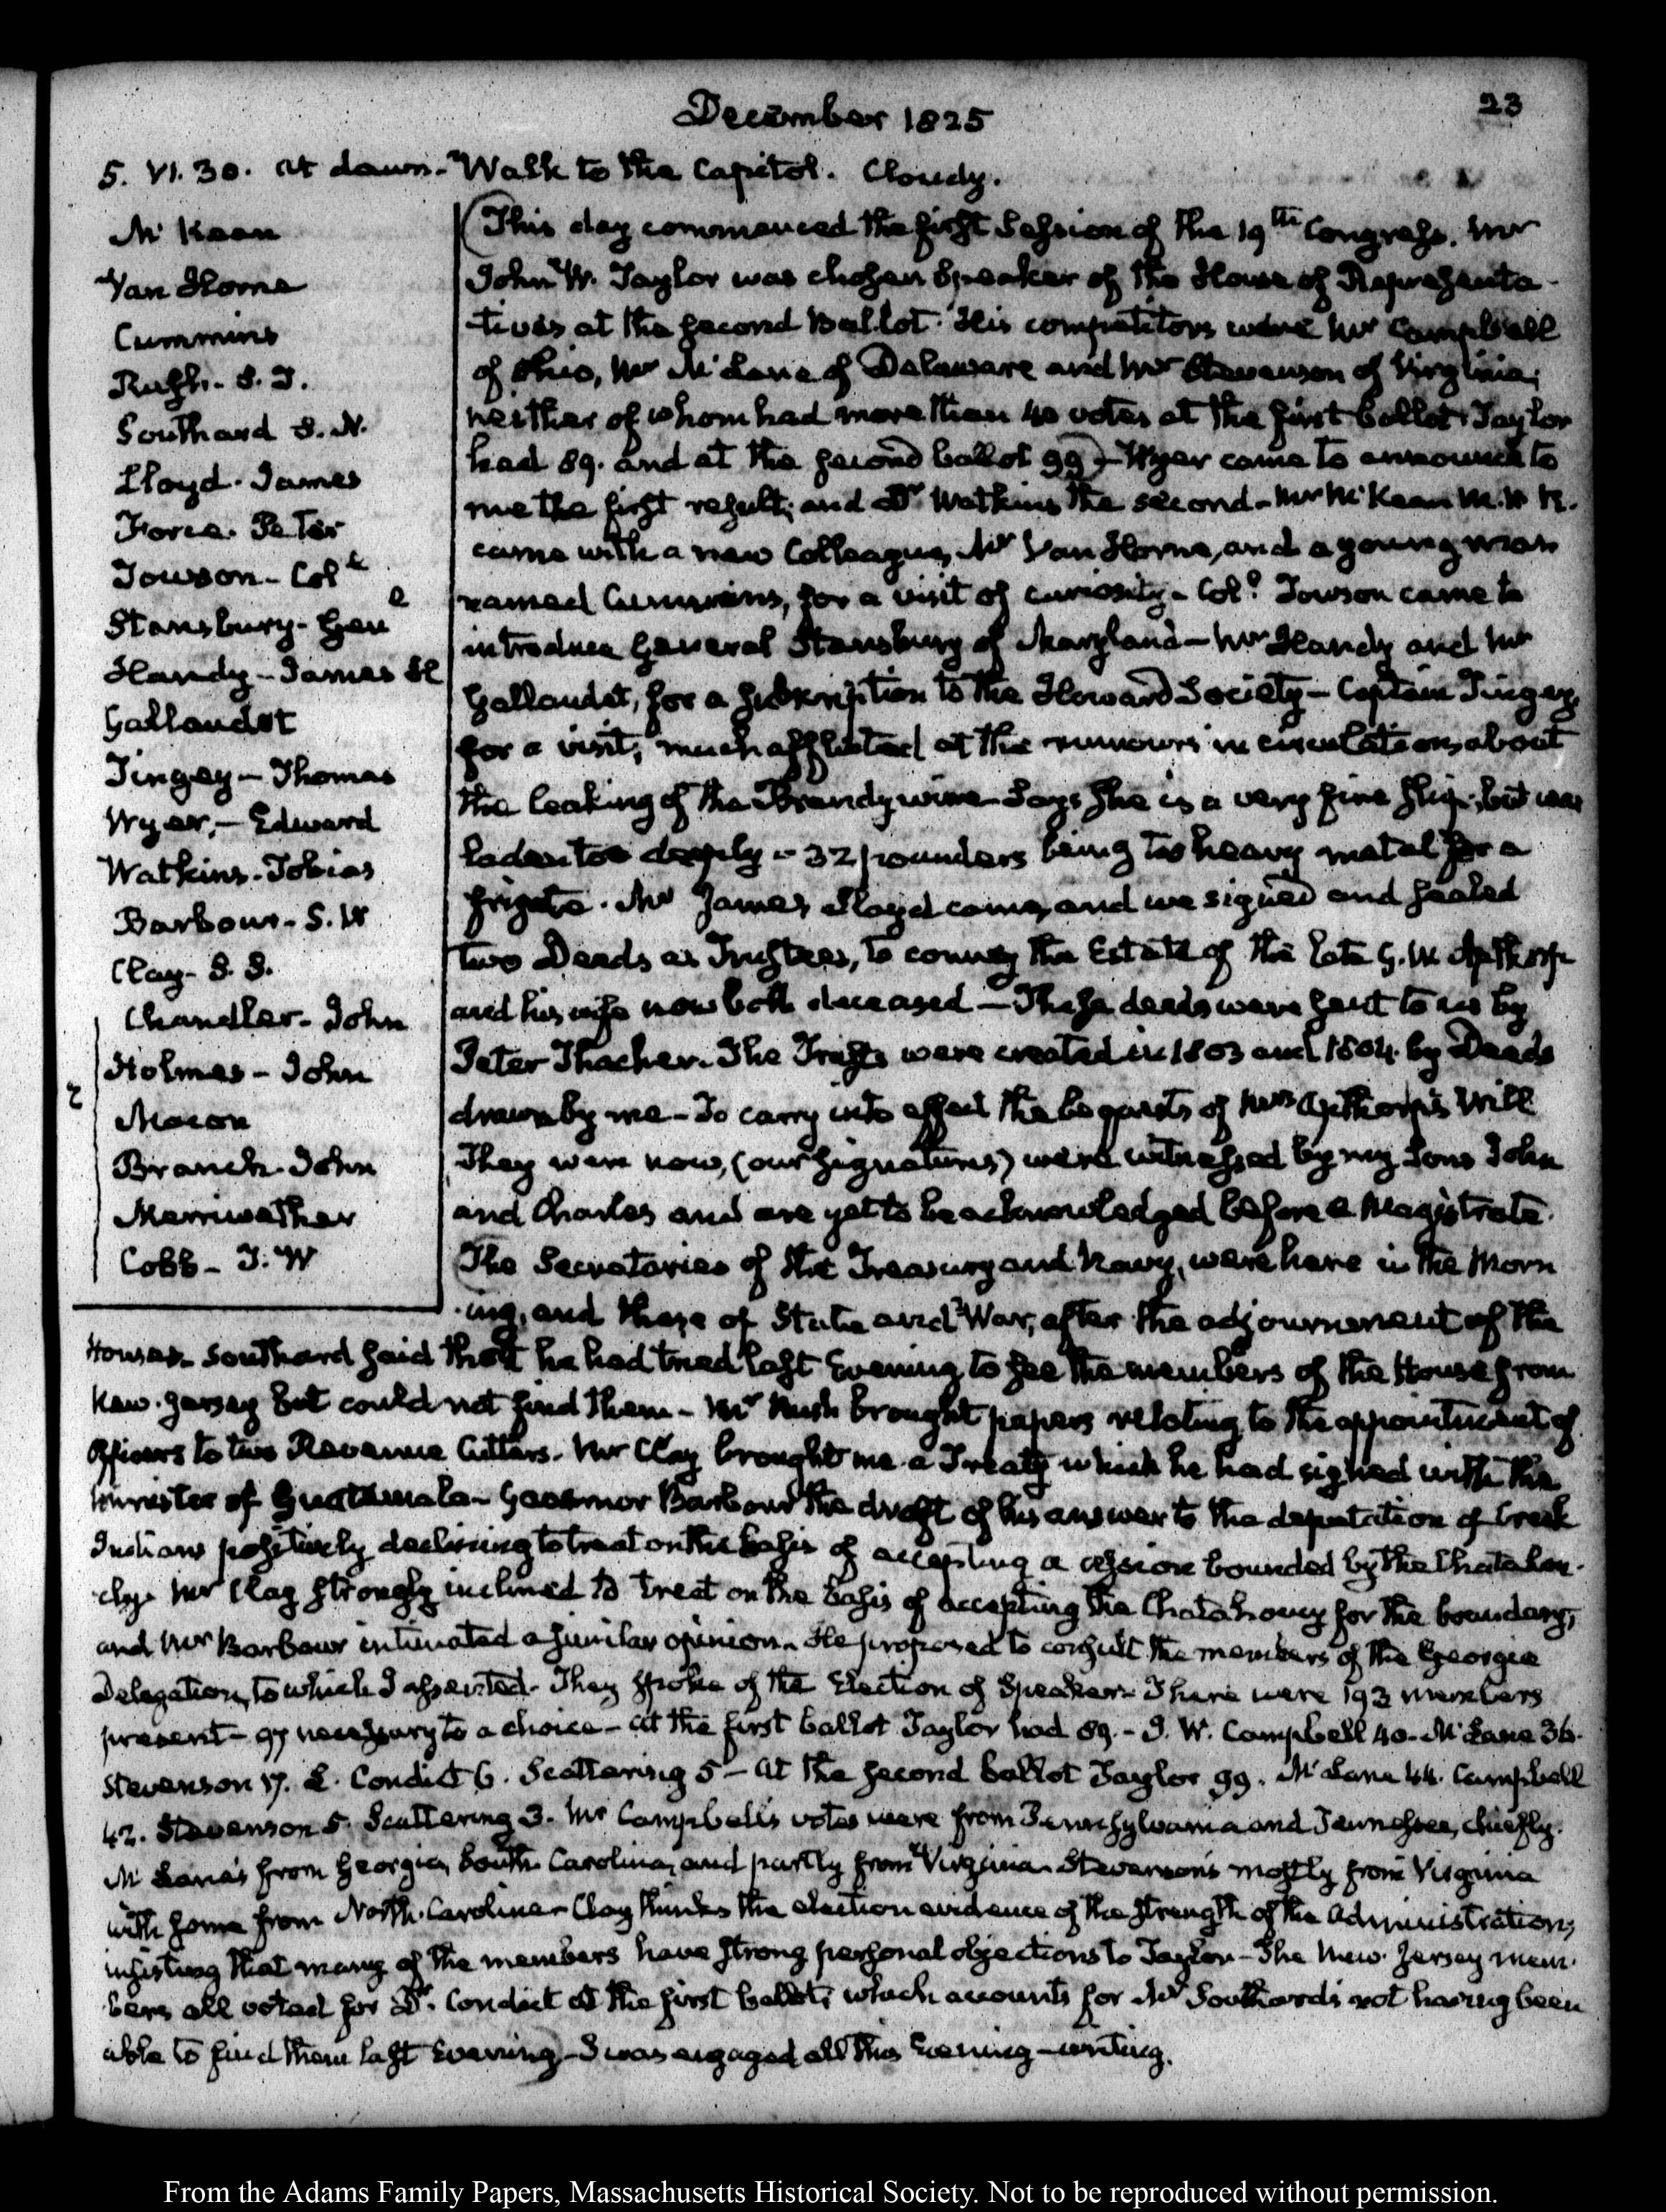 December 1825
23
5. VI. 30. at dawn. Walk to the Capitol. Cloudy.
Mc Kean
Van Horne
Cummins
Rush. S. T.
Southard S. N.
Lloyd. James
Force. Peter
Towson. Col
Stansbury. Gen
Handy - James H
Gallaudet
Tingey - Thomas
Wyer, - Edward
Watkins. Tobias
Barbour. S. W
Clay. S. S.
Chandler. John
Holmes - John
Macon
Branch. John
Merriwether
Cobb - T. W
(This day commenced the first Session of the 19th Congress. Mr
John W. Taylor was chosen Speaker of the House of Representa-
-tives at the second Ballot. His competitors were Mr Campbell
of Ohio, Mr McLane of Delaware and Mr Stevenson of Virginia;
neither of whom had more than 40 votes at the first ballot. Taylor
had 89. and at the second ballot 99) - Wyer came to announce to
me the first result; and Dr Watkins the second - Mr McKean M. H R.
came with a new Colleague, Mr Van Horne, and a young man
named Cummins, for a visit of curiosity - Col. Towson came to
introduce General Stansbury of Maryland - Mr Handy and Mr
Gallaudet, for a subscription to the Howard Society - Captain Tingey,
for a visit; much afflicted at the rumours in circulation, about
the leaking of the Brandywine - Says she is a very fine ship, but was
laden too deeply - 32 pounders being too heavy metal for a
frigate. Mr James Lloyd came, and we signed and sealed
two Deeds as Trustees, to convey the Estate of the late G. W. Apthorp
and his wife now both deceased - These deeds were sent to us by
Peter Thacher. The Trusts were created in 1803 and 1804. by Deeds
drawn by me - To carry into effect the bequests of Mrs Apthorp's Will
They were now, (our signatures) were witnessed by my Sons John
and Charles and are yet to be acknowledged before a Magistrate.
The Secretaries of the Treasury and Navy, were here in the Morn
ing, and those of State and War, after the adjournment of the
Houses. Southard said that he had tried last Evening to see the members of the House from
New-Jersey but could not find them - Mr Rush brought papers relating to the appointment of
Officers to two Revenue Cutters. Mr Clay brought me a Treaty which he had signed with the
Minister of Guatemala - Governor Barbour the draft of his answer to the deputation of Creek
Indians positively declining to treat on the basis of accepting a cession bounded by the Chatahoo-
chy. Mr Clay strongly inclined to treat on the basis of accepting the Chatahouchy for the boundary,
and Mr Barbour intimated a similar opinion. He proposed to consult the members of the Georgia
Delegation, to which I assented. They spoke of the Election of Speaker. There were 193 members
present - 97 necessary to a choice - at the first ballot Taylor had 89. - J. W. Campbell 40. McLane 36.
Stevenson 17. L. Condict 6. Scattering 5 - At the second ballot Taylor 99. McLane 44. Campbell
42. Stevenson 5. Scattering 3. Mr Campbell's votes were from Pennsylvania and Tennessee, chiefly.
McLane's from Georgia, South Carolina, and partly from Virginia. Stevenson's mostly from Virginia
with some from North-Carolina - Clay thinks the election evidence of the strength of the Administration;
insisting that many of the members have strong personal objections to Taylor - The New-Jersey mem-
bers all voted for Dr. Condict at the first ballot, which accounts for Mr Southard's not having been
able to find them last Evening - I was engaged all this Evening - writing.
From the Adams Family Papers, Massachusetts Historical Society. Not to be reproduced without permission.